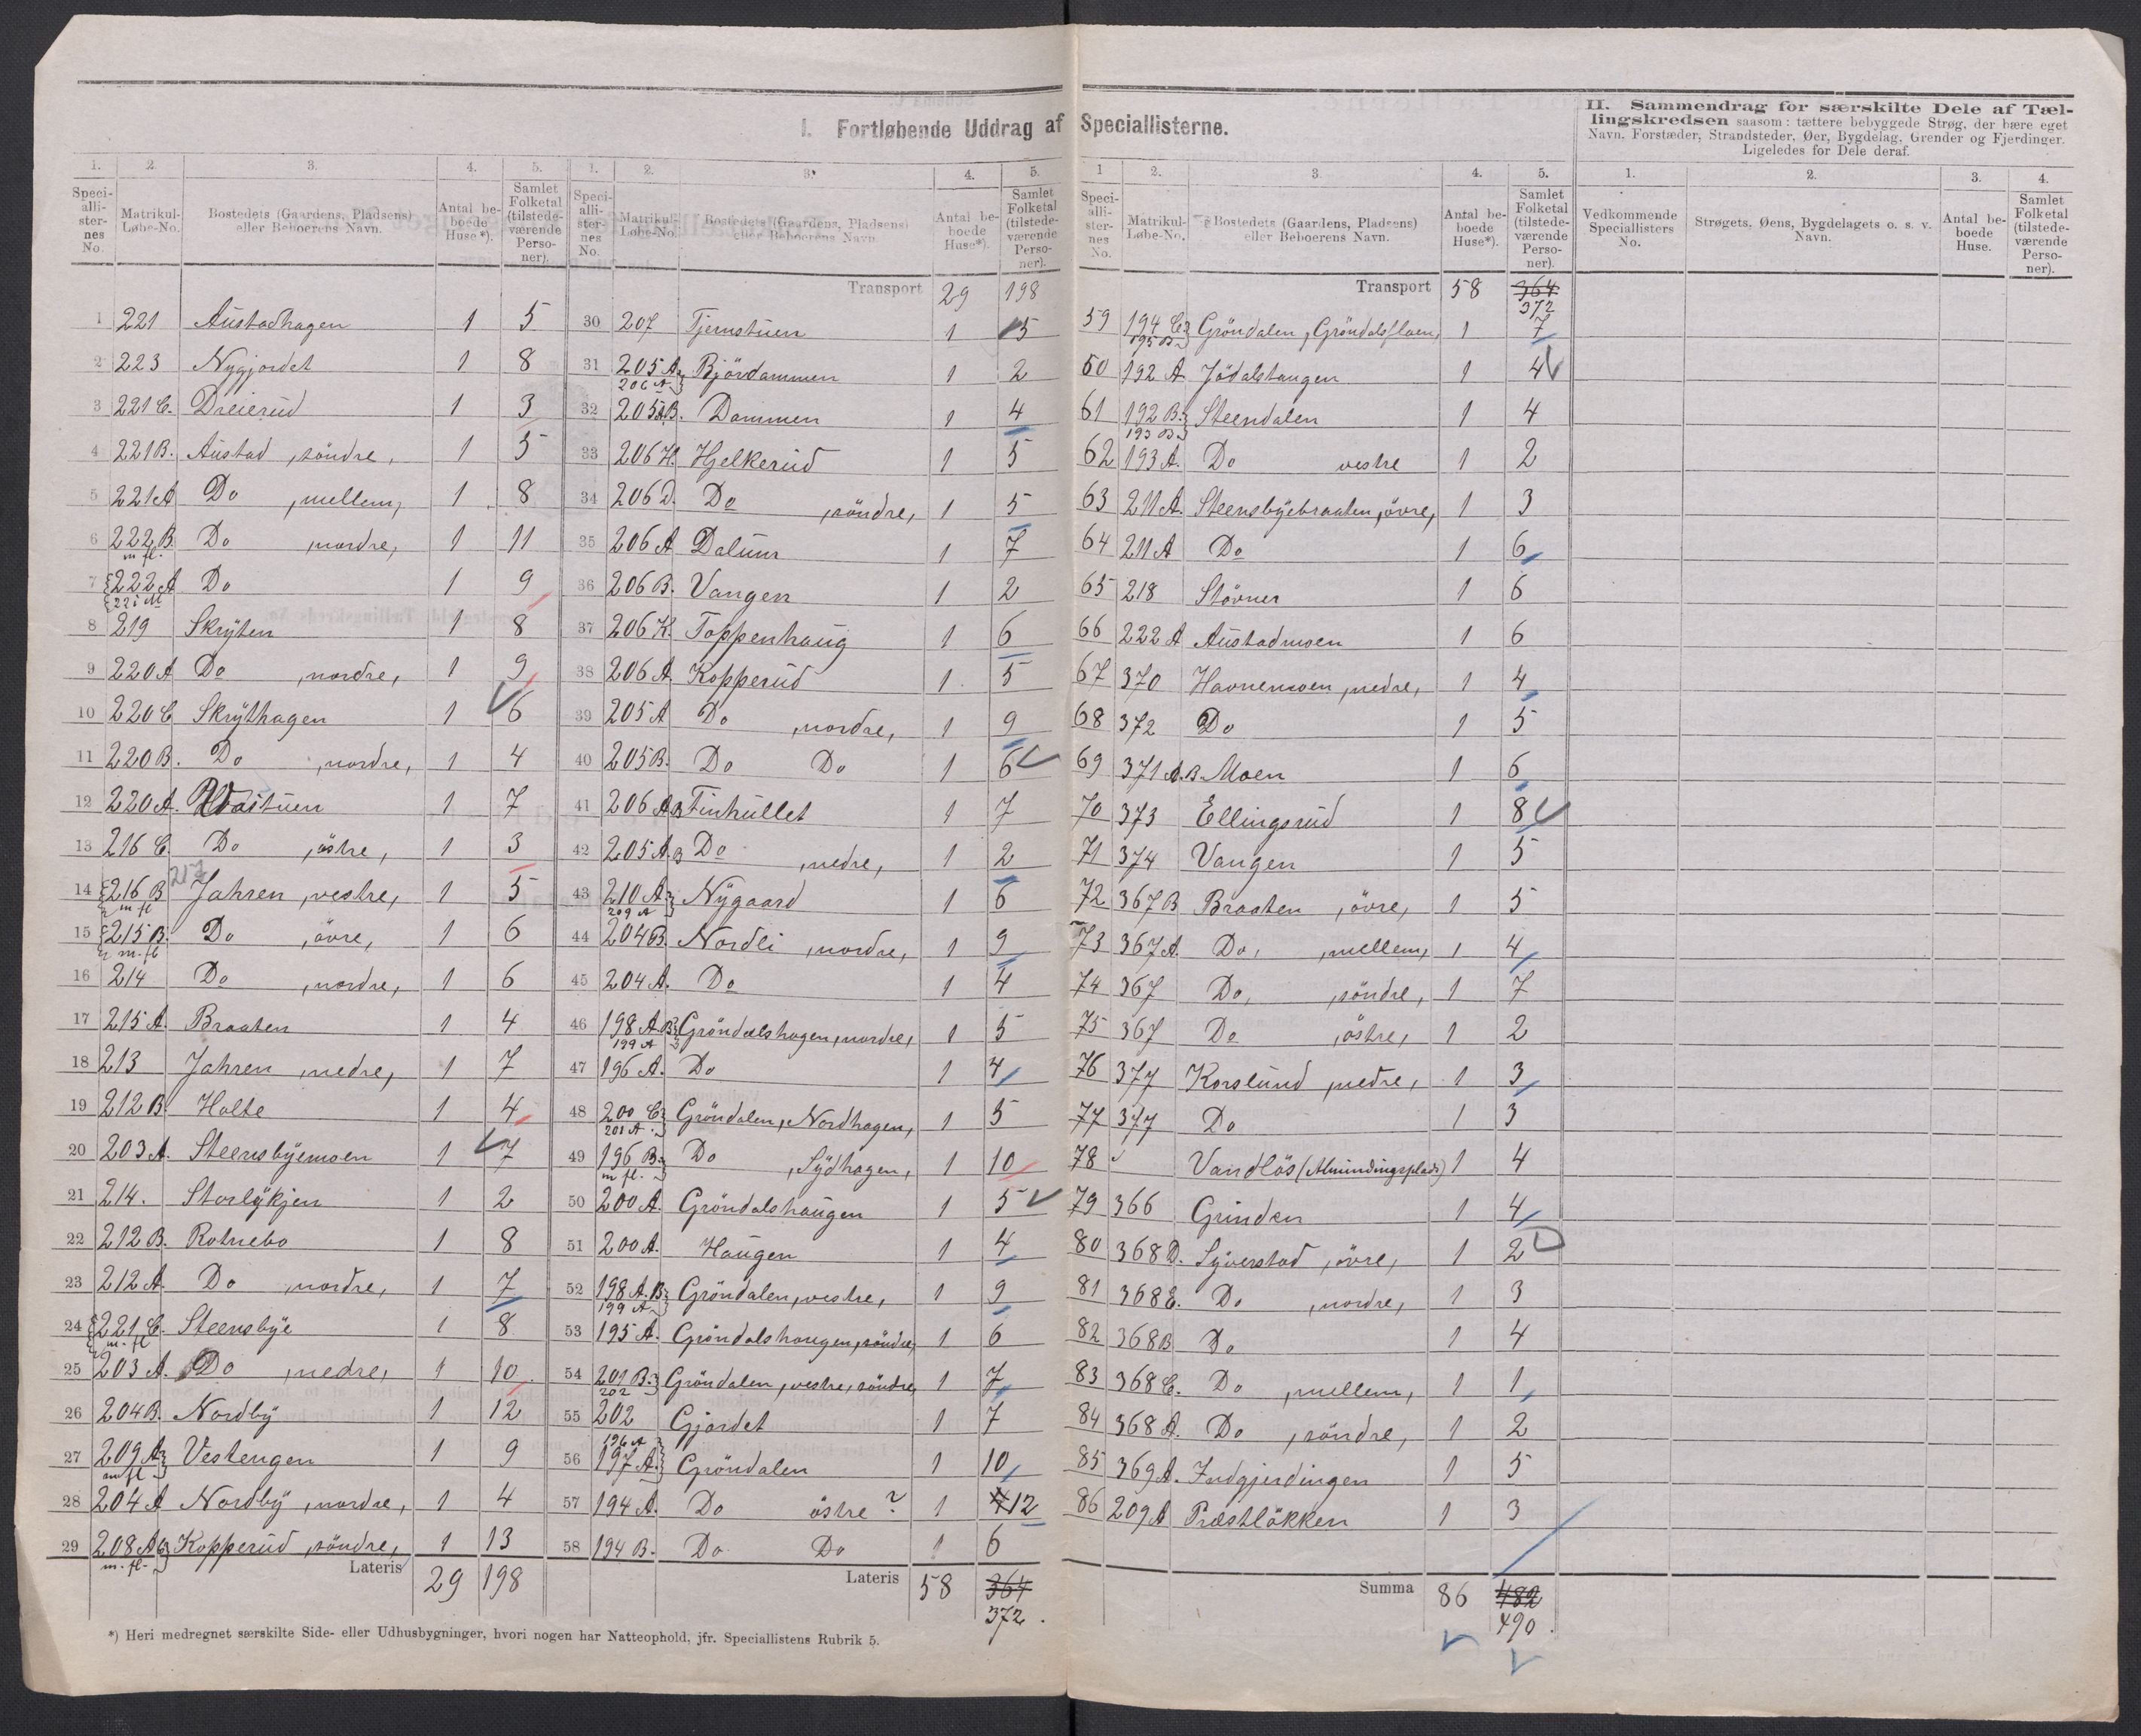 I. Fortløbende Uddrag af Speciallisterne.
II. Sammendrag for særskilte Dele af Tæl-
lingskredsen saasom: tættere bebyggede Strøg, der bære eget
Navn, Forstæder, Strandsteder, Øer, Bygdelag, Grender og Fjerdinger.
Ligeledes for Dele deraf.
1. 2. 3. 4. 5.
Speci-alli-ster-nes No. Matrikul-Løbe-No. Bostedets (Gaardens, Pladsens) eller Beboerens Navn. Antal be-boede Huse*). Samlet Folketal (tilstede-værende Perso-ner).
1 221 Austadhagen 1 5
2 223 Nygjordet 1 8
3 221 C. Dreierud 1 3
4 221 B. Austad, söndre, 1 5
5 221 A Do, mellem, 1 8
6 222 B. m fl. Do, nordre, 1 11
7 222 A 221 M Do 1 9
8 219 Skrÿten 1 8
9 220 A Do, nordre, 1 9
10 220 C Skrÿthagen 1 6
11 220 B. Do, nordre, 1 4
12 220 A. 1 7
13 216 C. Do, östre, 1 3
217
14 216 B m fl Jahren, vestre, 1 5
15 215 B. m. fl Do, övre, 1 6
16 214 Do, nordre, 1 6
17 215 A. Braaten 1 4
18 213 Jahren, nedre, 1 7
19 212 B Holte 1 4
20 203 A. Steensbÿemoen 1 7
21 214. Storlÿkjen 1 2
22 212 B. Rotnebo 1 8
23 212 A. Do, nordre, 1 7
24 221 C. m. fl Steensbÿe 1 8
25 203 A. Do, nedre, 1 10
26 204 B. Nordbÿ 1 12
27 209 A m fl Vestengen 1 9
28 204 A Nordbÿ, nordre, 1 4
29 208 A m. fl. Kopperud, söndre, 1 13
Lateris 29 198
1. 2. 3. 4. 5.
Speci-alli-ster-nes No. Matrikul-Løbe-No. Bostedets (Gaardens, Pladsens) eller Beboerens Navn. Antal be-boede Huse*). Samlet Folketal (tilstede-værende Perso-ner).
Transport 29 198
30 207 Tjernstuen 1 5
31 205 A. 206 A. Björdammen 1 2
32 205 B. Dammen 1 4
33 206 H. Hjelkerud 1 5
34 206 D. Do, söndre, 1 5
35 206 A Dalum 1 7
36 206 B. Vangen 1 2
37 206 K. Toppenhaug 1 6
38 206 A. Kopperud 1 5
39 205 A Do, nordre, 1 9
40 205 B. Do Do 1 6
41 206 A B Finhullet 1 7
42 205 A. B Do, nedre, 1 2
43 210 A. 209 A Nÿgaard 1 6
44 204 B. Nordli, nordre, 1 9
45 204 A. Do 1 4
46 198 A. B. 199 A Gröndalshagen, nordre, 1 5
47 196 A. Do 1 4
48 200 C. 201 A. Gröndalen, Nordhagen, 1 5
49 196 B. m fl. Do, Sÿdhagen, 1 10
50 200 A. Gröndalshaugen 1 5
51 200 A. Haugen 1 4
52 198 A. B. 199 A Gröndalen, vestre, 1 9
53 195 A. Gröndalshaugen, söndre, 1 6
54 201 B. 202 Gröndalen, vestre, söndre, 1 7
55 202 Gjordet 1 7
56 196 A 197 A. Gröndalen 1 10
57 194 A. Do östre ? 1 4 12
58 194 B. Do Do 1 6
Lateris 58 364
372.
1 2. 3. 4. 5.
Speci-alli-ster-nes No. Matrikul-Løbe-No. Bostedets (Gaardens, Pladsens) eller Beboerens Navn. Antal be-boede Huse*). Samlet Folketal (tilstede-værende Perso-ner).
Transport 58 364
372
59 194 C. 195 B. Gröndalen, Gröndalsflaen, 1 7
60 192 A Jödalstangen 1 4
61 192 B. 193 B. Steendalen 1 4
62 193 A. Do vestre 1 2
63 211 A. Steensbÿebraaten, övre, 1 3
64 211 A Do 1 6
65 218 Stövner 1 6
66 222 A Austadmoen 1 6
67 370 Havnemoen, nedre, 1 4
68 372 Do 1 5
69 371 A. B. Moen 1 6
70 373 Ellingsrud 1 8
71 374 Vangen 1 5
72 367 B Braaten, övre, 1 5
73 367 A. Do, mellem, 1 4
74 367 Do, söndre, 1 7
75 367 Do östre, 1 2
76 377 Korslund, nedre, 1 3
77 377 Do 1 3
78 Vandlös (Almindingsplads) 1 4
79 366 Grinden 1 4
80 368 D. Sÿverstad, övre, 1 2
81 368 E. Do, nordre, 1 3
82 368 B Do 1 4
83 368 C. Do, mellem, 1 1
84 368 A. Do, söndre, 1 2
85 369 A. Indgjerdingen 1 5
86 209 A Præstlökken 1 3
Summa 86 482
490.
1. 2. 3. 4.
Vedkommende Speciallisters No. Strøgets, Øens, Bygdelagets o. s. v. Navn. Antal be-boede Huse. Samlet Folketal (tilstede-værende Perso-ner).
*) Heri medregnet særskilte Side- eller Udhusbygninger, hvori nogen har Natteophold, jfr. Speciallistens Rubrik 5.